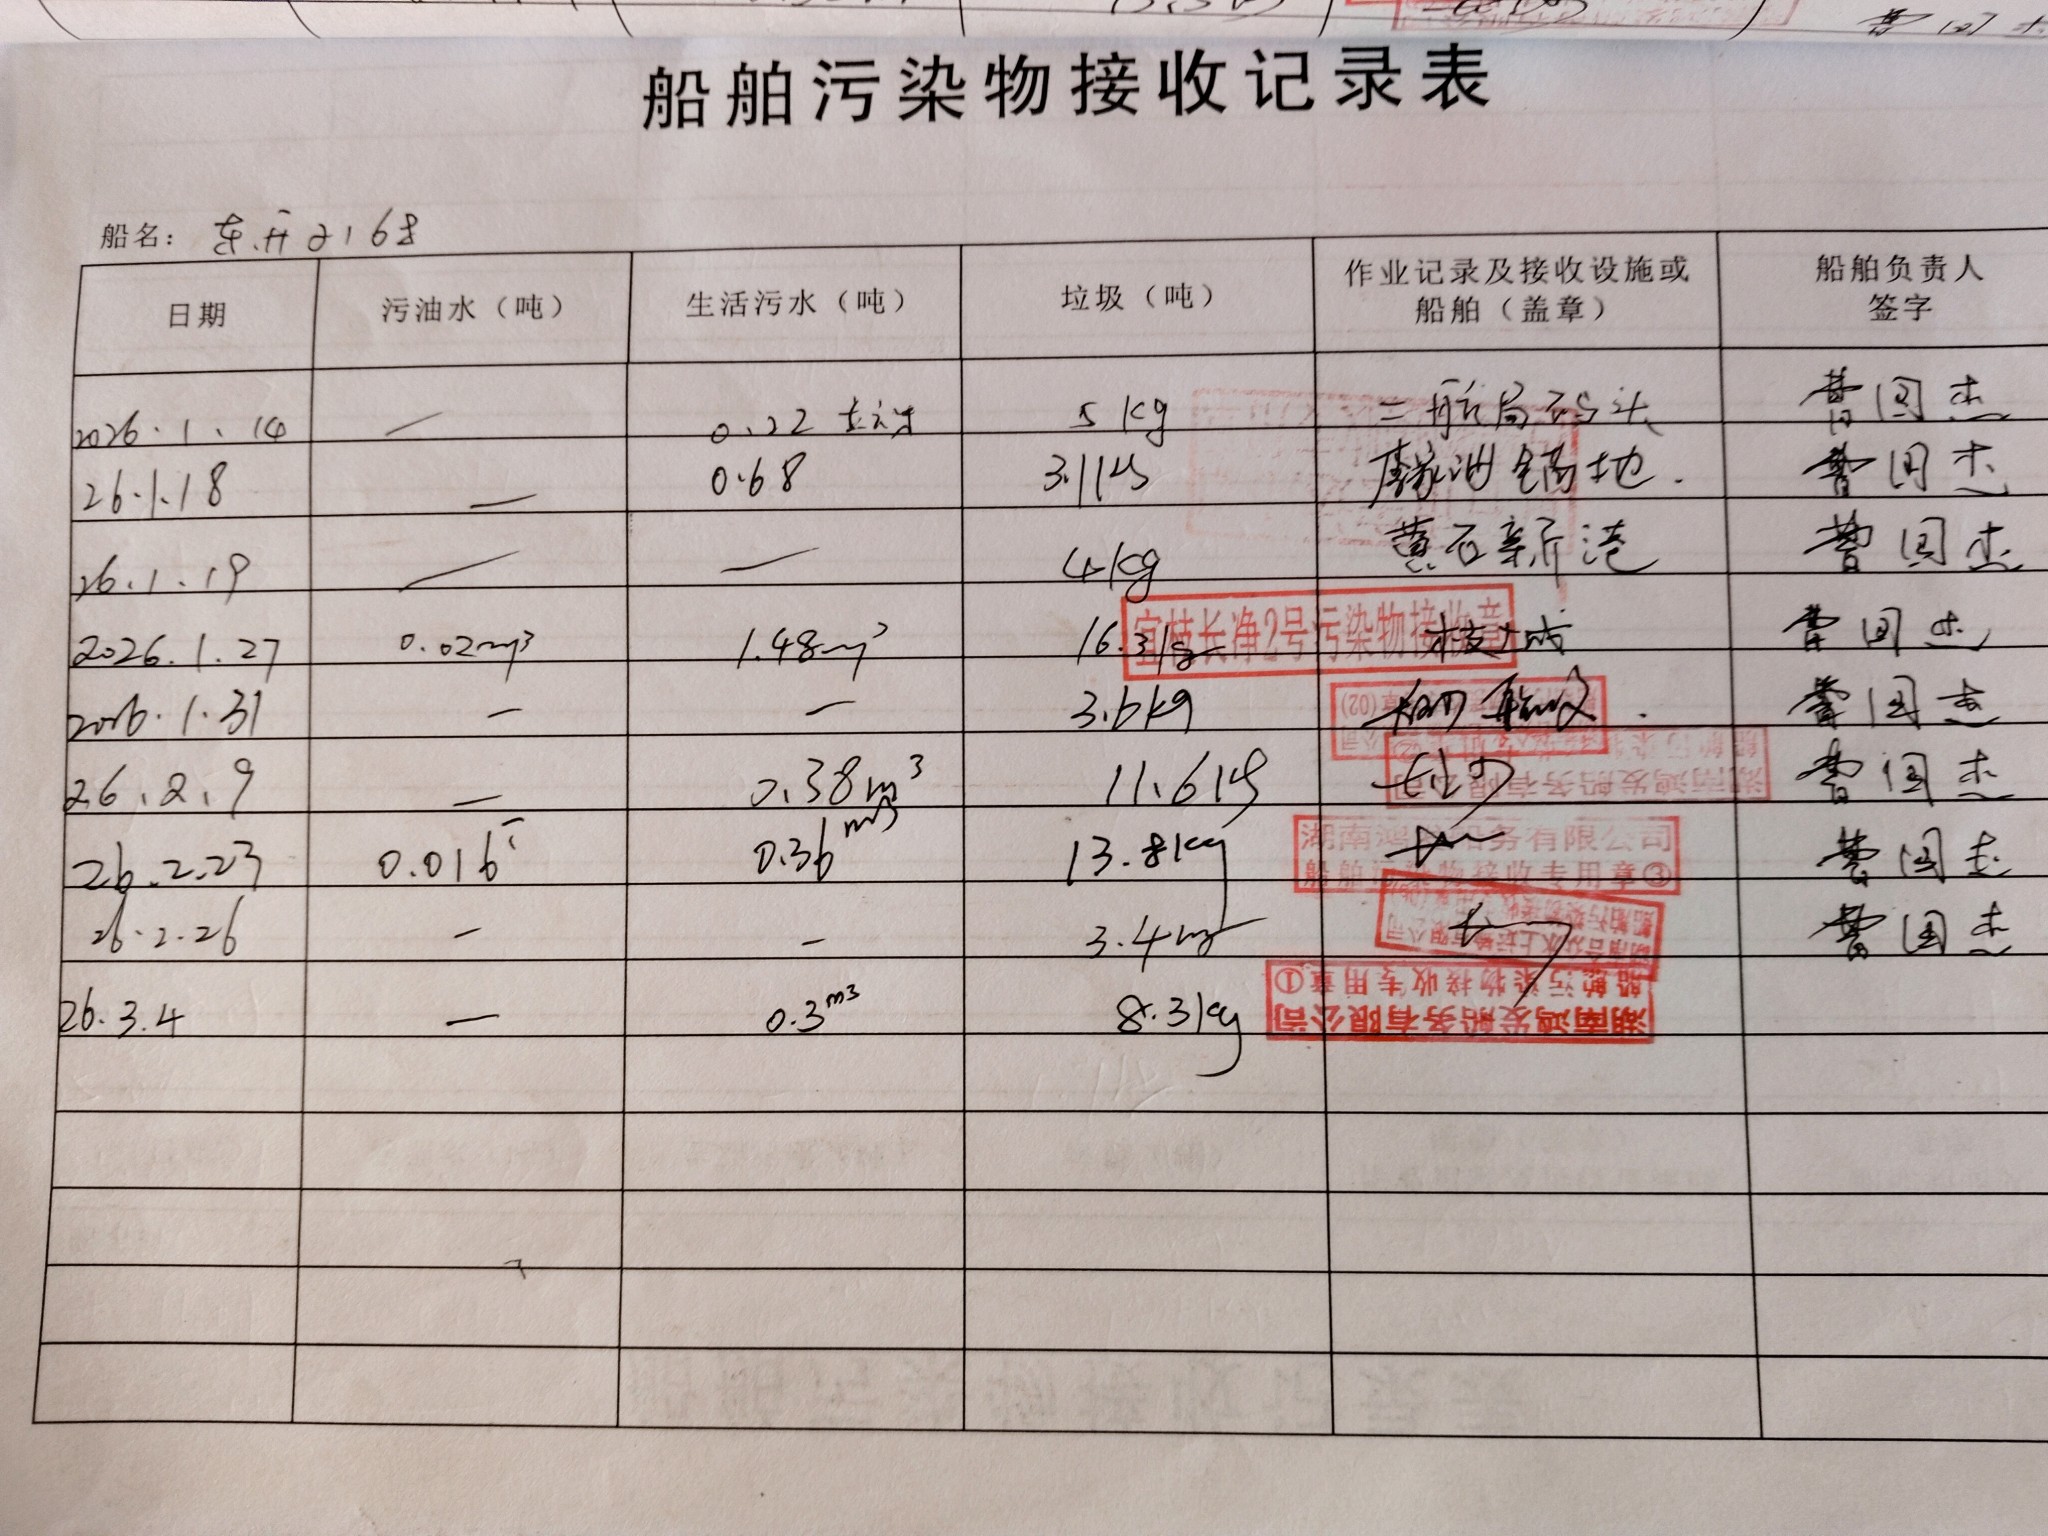 船舶污染物接收记录表
船名：东升2168
日期 污油水（吨） 生活污水（吨） 垃圾（吨） 作业记录及接收设施或船舶（盖章） 船舶负责人签字
2026.1.14 — 0.22 5kg 二航局码头 曹国杰
26.1.18 — 0.68 3.1kg 曹国杰
26.1.19 — — 4kg 黄石新港 曹国杰
2026.1.27 0.02m³ 1.48m³ 16.3kg 宜枝长净2号污染物接收章 曹国杰
2026.1.31 — — 3.6kg 曹国杰
26.2.9 — 0.38m³ 11.6kg 湖南鸿发船务有限公司 曹国杰
26.2.23 0.016 0.36m³ 13.8kg 湖南鸿发船务有限公司 船舶污染物接收专用章③ 曹国杰
26.2.26 — — 3.4kg 曹国杰
26.3.4 — 0.3m³ 8.3kg 湖南鸿发船务有限公司 船舶污染物接收专用章①